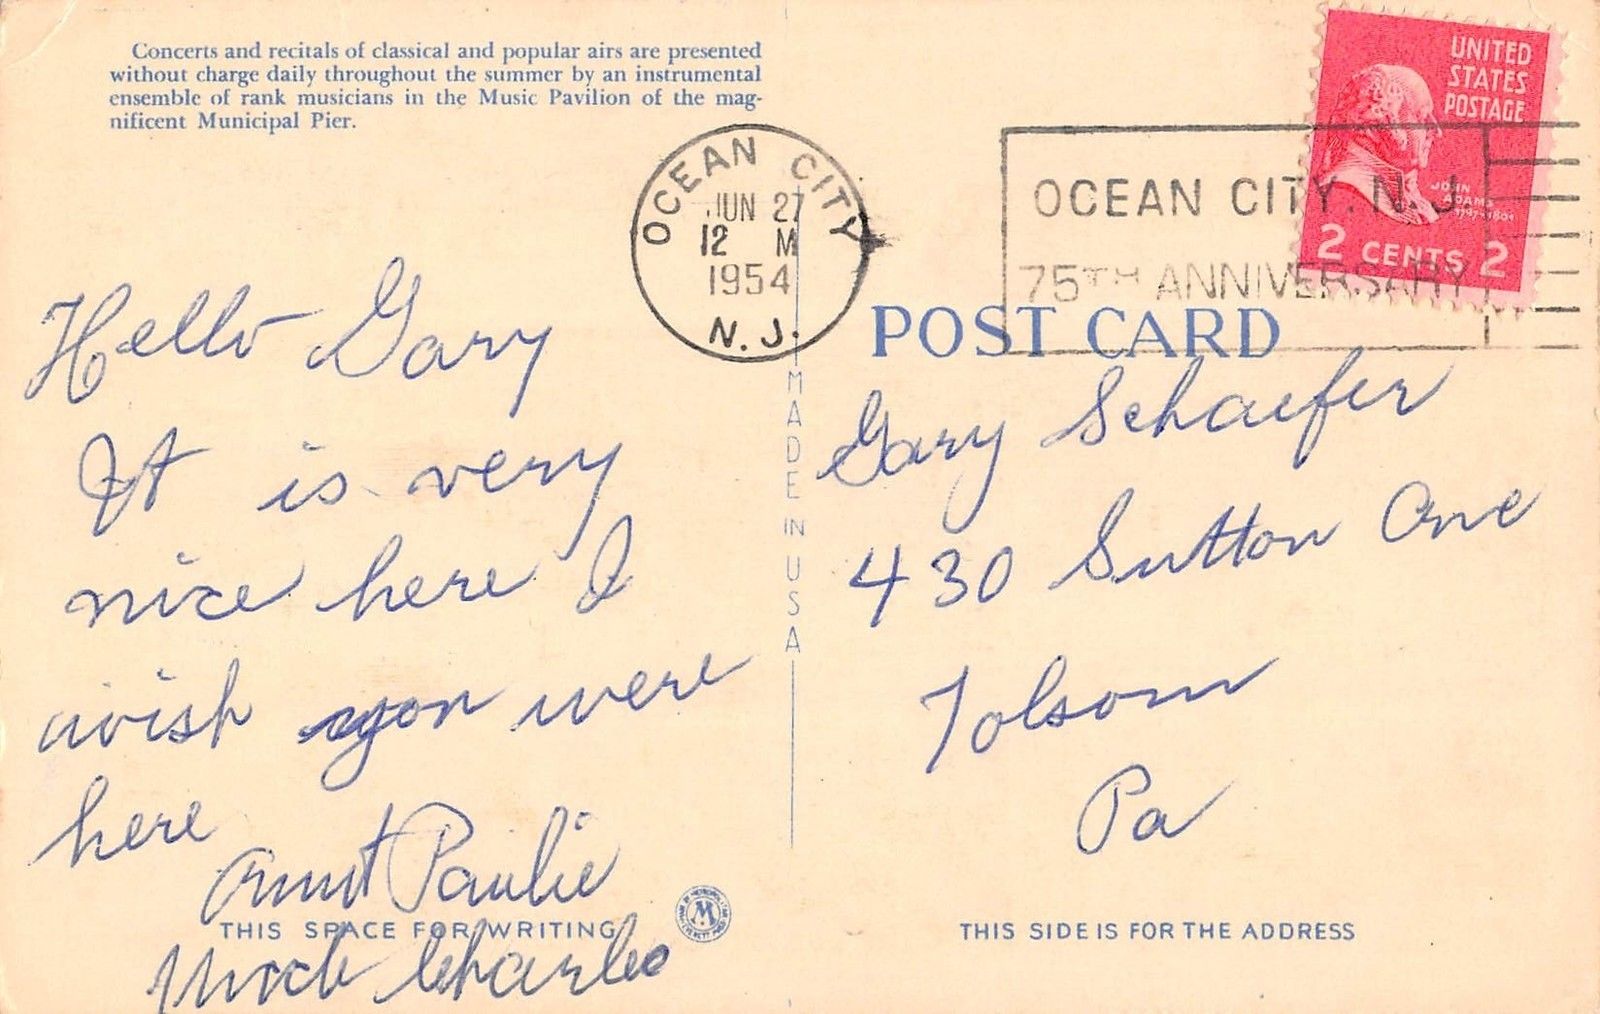 Concerts and recitals of classical and popular airs are presented
without charge daily throughout the summer by an instrumental
ensemble of rank musicians in the Music Pavilion of the mag-
nificent Municipal Pier.
OCEAN CITY
JUN 27
12 M
1954
N. J.
OCEAN CITY. N. J.
75TH ANNIVERSARY
UNITED
STATES
POSTAGE
JOHN
ADAMS
1797-1801
2 CENTS 2
POST CARD
MADE IN USA
Hello Gary
It is very
nice here I
wish you were
here
Aunt Paulie
Uncle Charlie
Gary Schaefer
430 Sutton Ave
Folsom
Pa
THIS SPACE FOR WRITING
M
THIS SIDE IS FOR THE ADDRESS